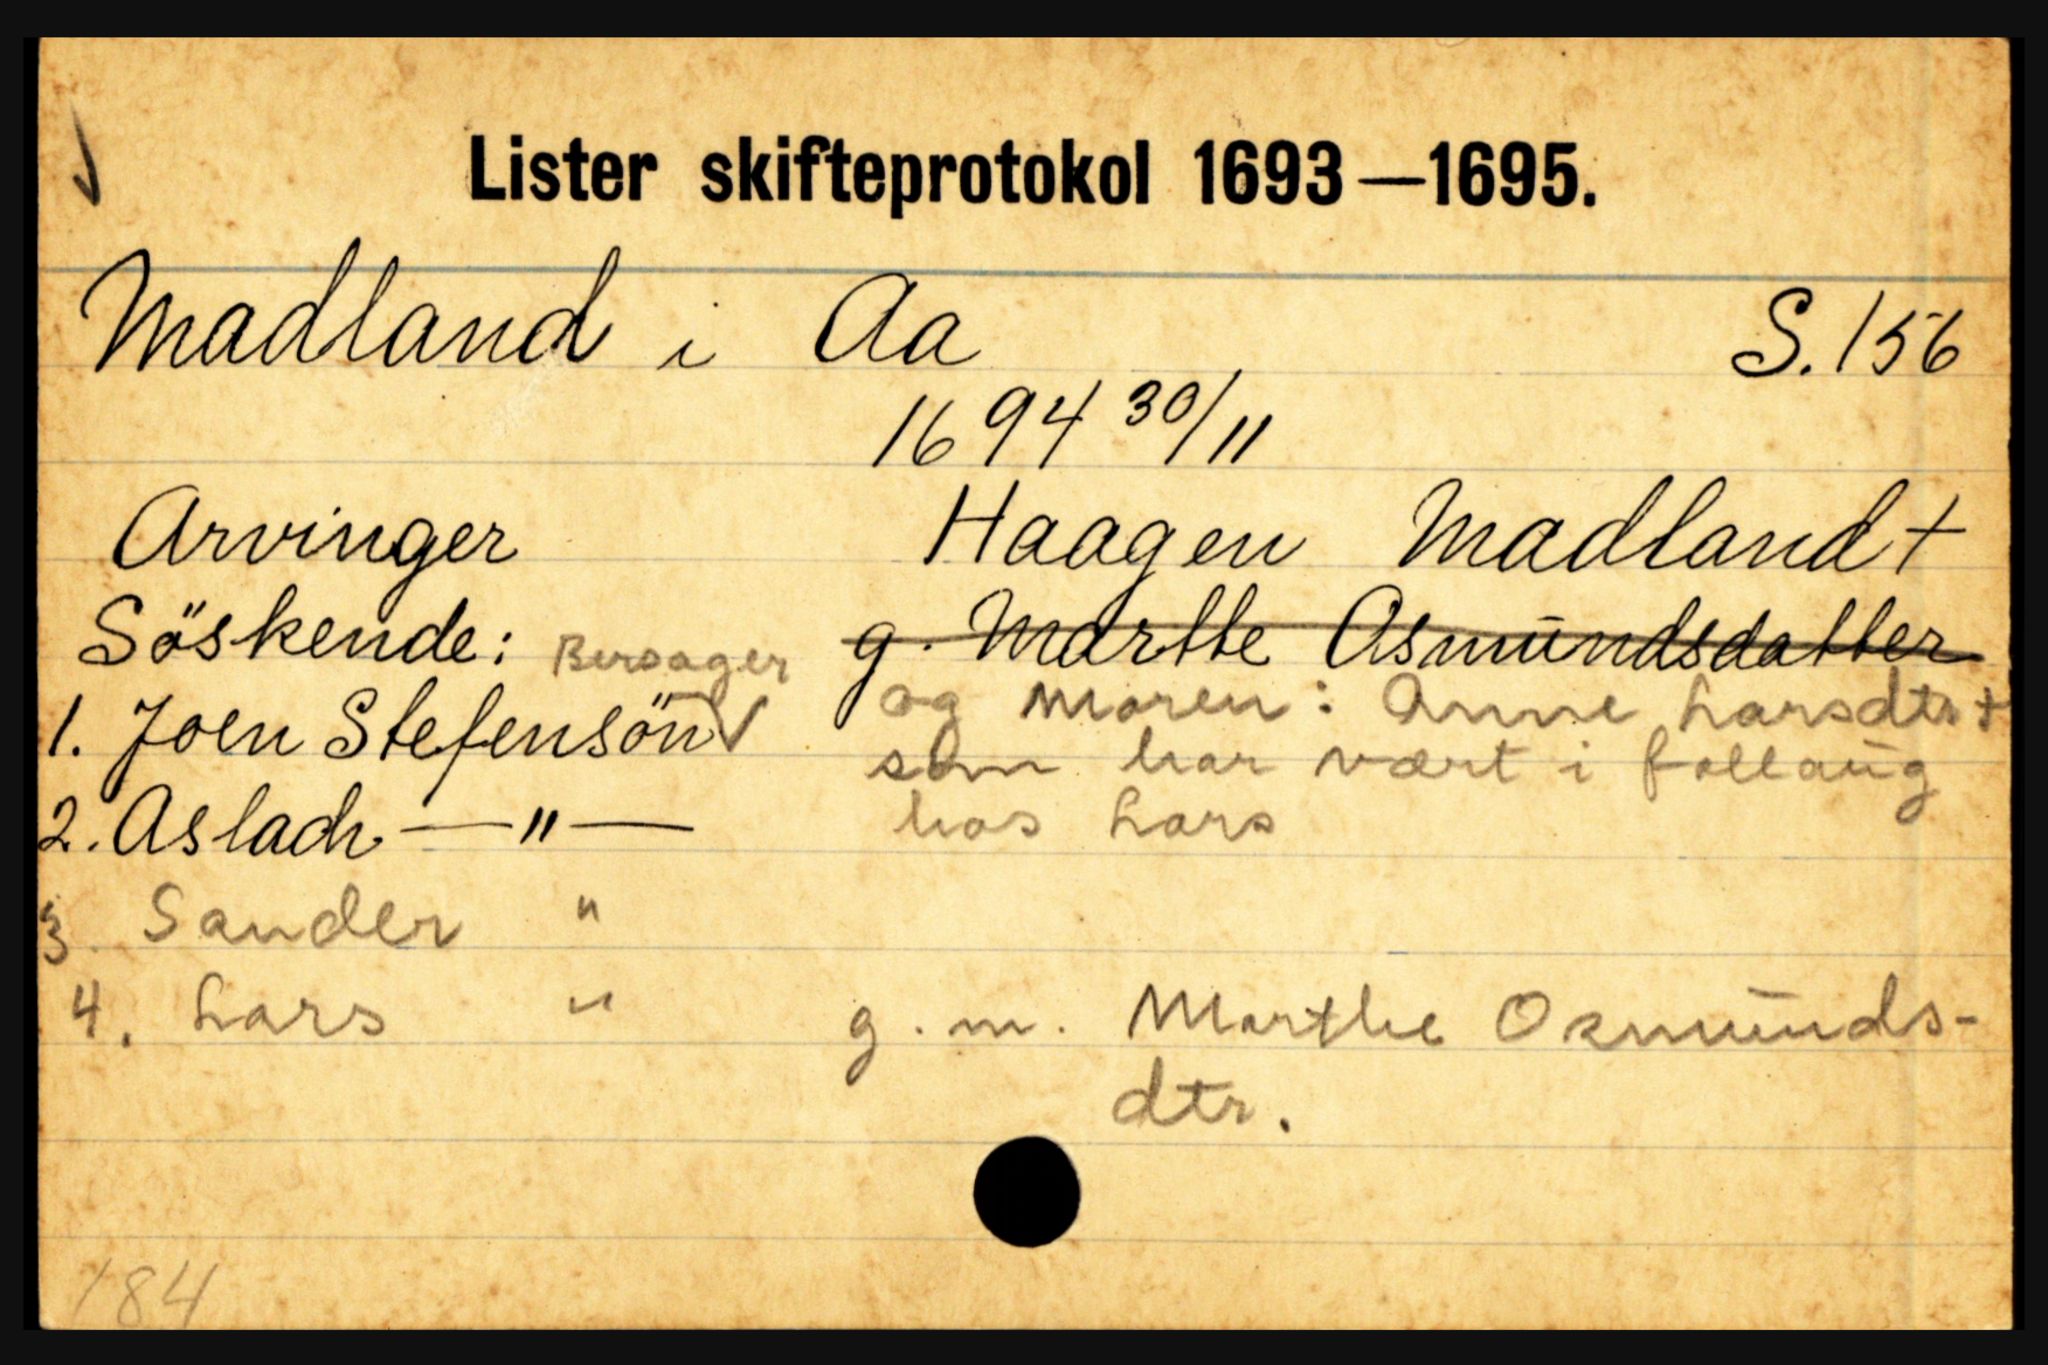 Lister skifteprotokol 1693—1695.
Madland i Aa S. 156
1694 30/11
Arvinger Haagen Madland +
Söskende: Bersager g. Marthe Asmundsdatter
1. Joen Stefensön √ og moren: Anne Larsdtr +
som har vært i føllaug
2. Aslach —"— hos Lars
3. Sander "
4. Lars " g. m. Marthe Osmunds-
dtr.
184